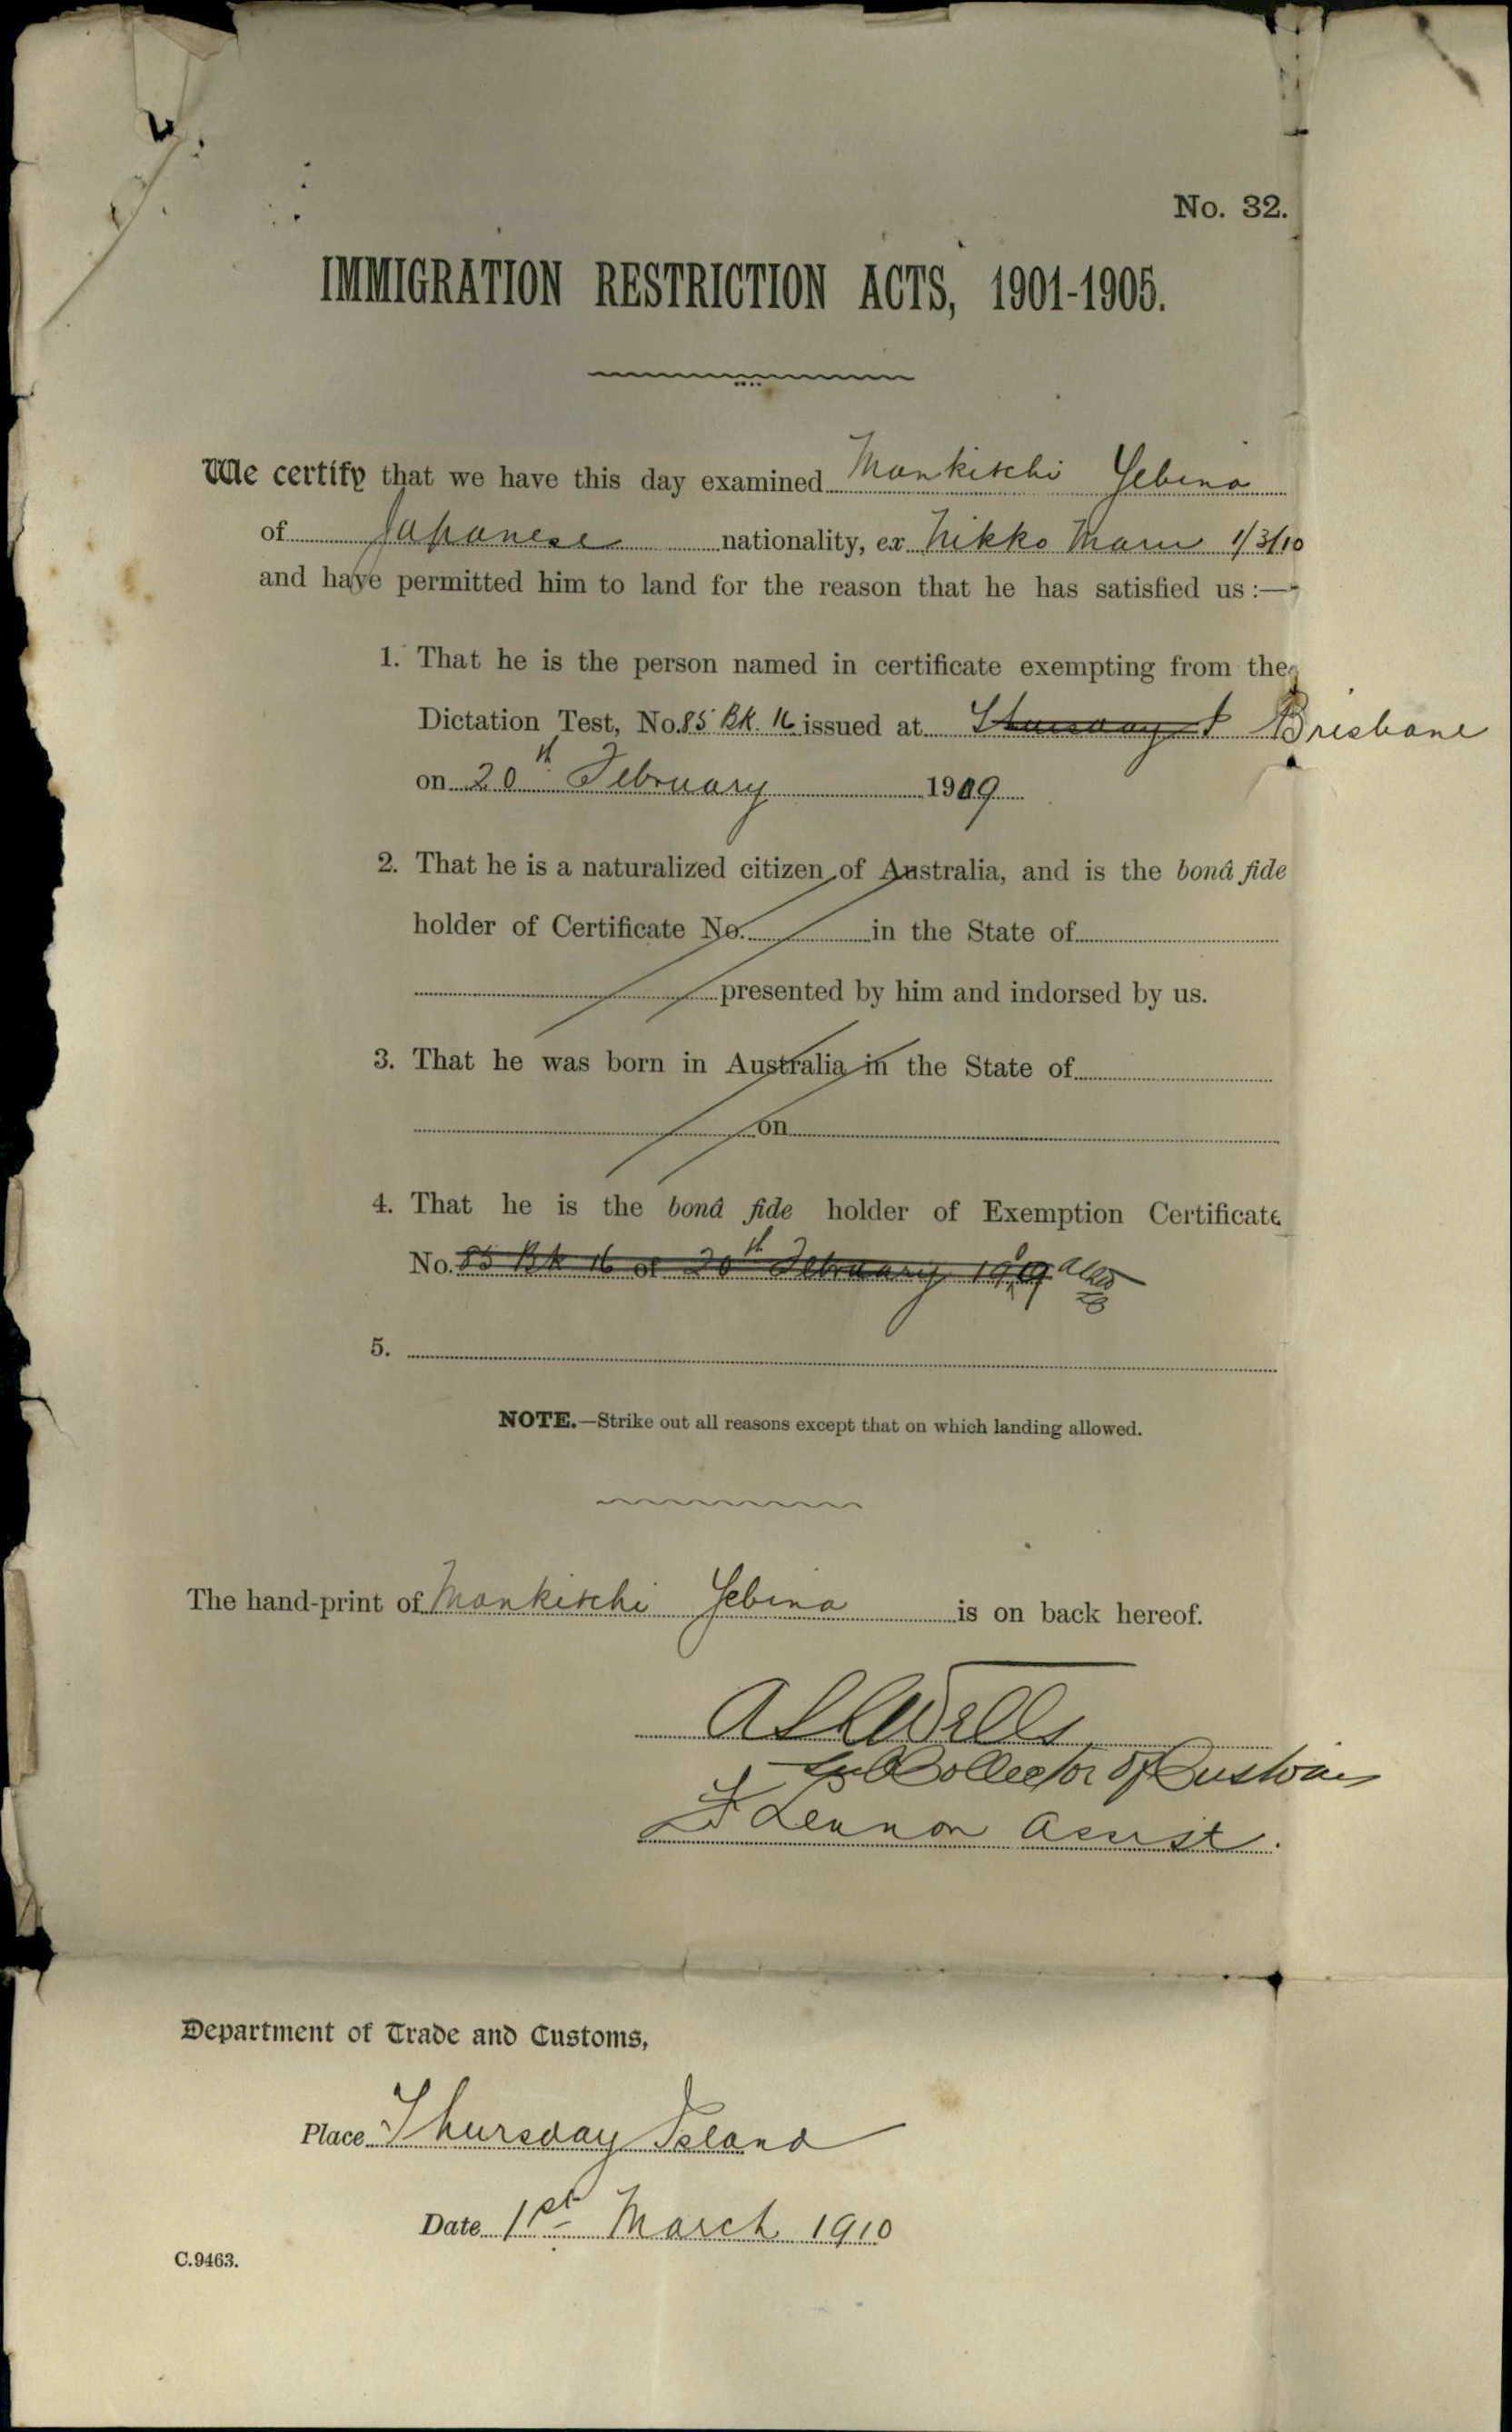 No. 32.
IMMIGRATION RESTRICTION ACTS, 1901-1905.
We certify that we have this day examined Mankitchi Yebina
of Japanese nationality, ex Nikko Maru 1/3/10
and have permitted him to land for the reason that he has satisfied us :—
1. That he is the person named in certificate exempting from the
Dictation Test, No. 85 Bk. 16 issued at Thursday I Brisbane
on 20th February 1909
2. That he is a naturalized citizen of Australia, and is the bonâ fide
holder of Certificate No. in the State of
presented by him and indorsed by us.
3. That he was born in Australia in the State of
on
4. That he is the bonâ fide holder of Exemption Certificate
No. 85 Bk 16 of 20th February 1909
5.
NOTE.—Strike out all reasons except that on which landing allowed.
The hand-print of Mankitchi Yebina is on back hereof.
Wells
Sub Collector of Customs
F Lennon Assist.
Department of Trade and Customs,
Place Thursday Island
Date 1st March 1910
C.9463.